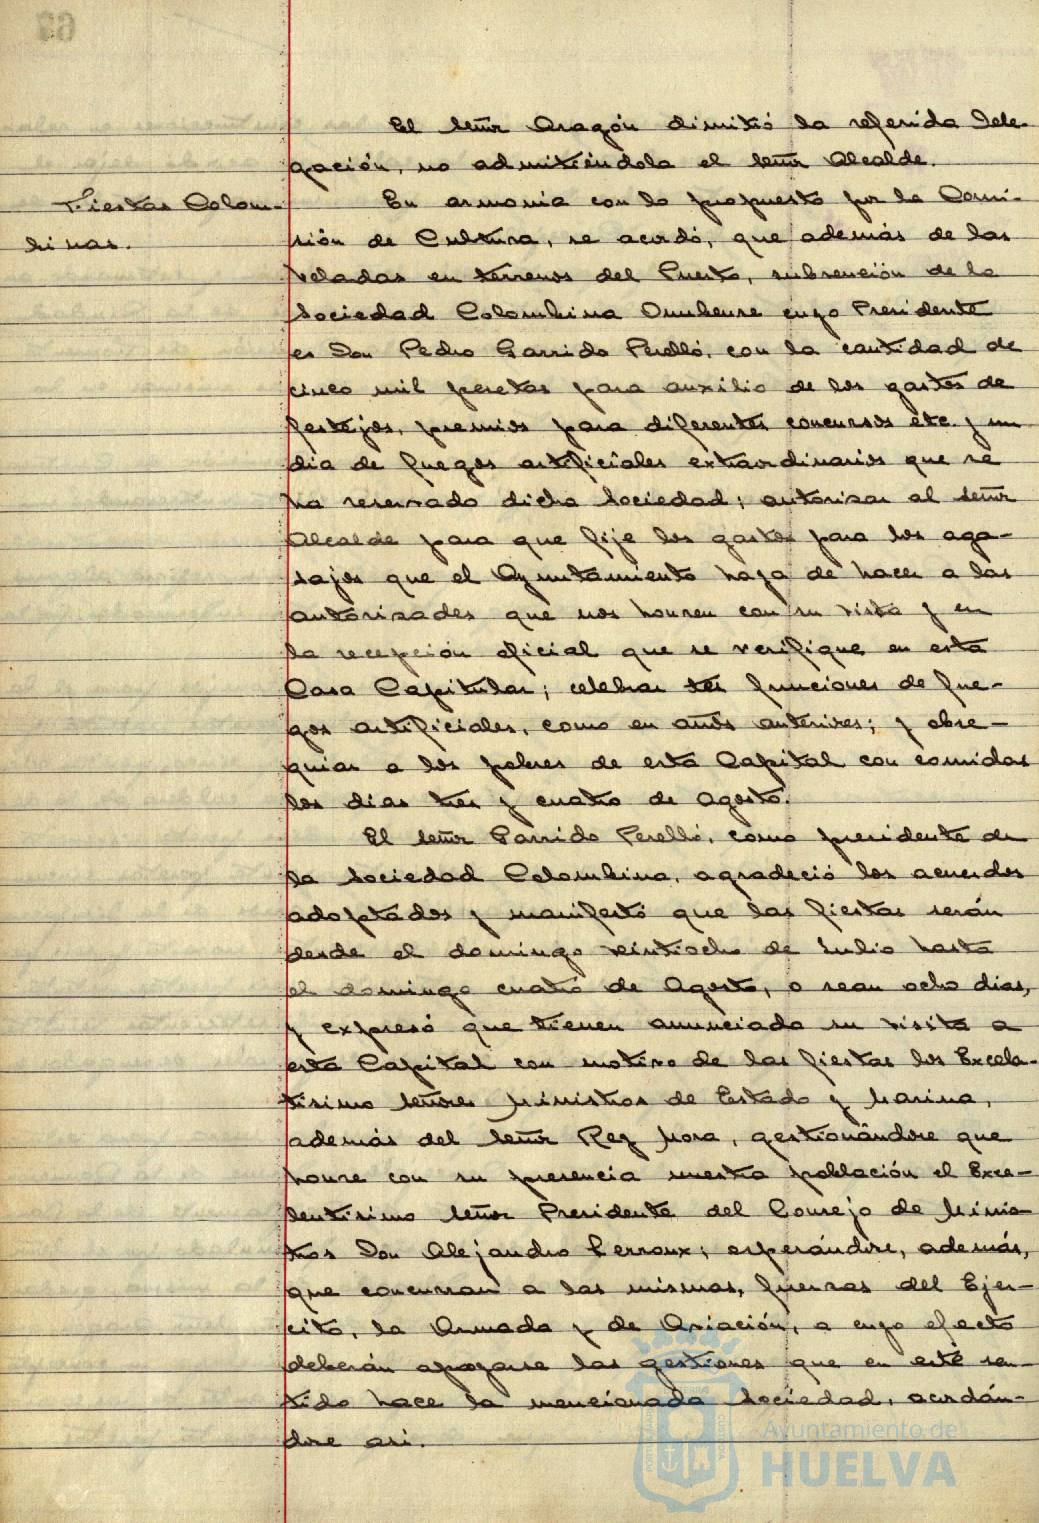 El señor Aragón dimitió la referida Dele-
gación, no admitiéndola el señor Alcalde.
Fiestas Colom-
binas.
En armonia con lo propuesto por la Comi-
sión de Cultura, se acordó, que además de las
veladas en terrenos del Puerto, subvención de la
Sociedad Colombina Onubense cuyo Presidente
es Don Pedro Garrido Perelló, con la cantidad de
cinco mil pesetas para auxilio de los gastos de
festejos, premios para diferentes concursos etc. y un
dia de fuegos artificiales extraordinarios que se
ha reservado dicha Sociedad; autorizar al señor
Alcalde para que fije los gastos para los aga-
sajos que el Ayuntamiento haya de hacer a las
autorizades que nos honren con su visita y en
la recepción oficial que se verifique en esta
Casa Capitular; celebrar tres funciones de fue-
gos artificiales, como en años anteriores; y obse-
quiar a los pobres de esta Capital con comidas
los dias tres y cuatro de Agosto.
El señor Garrido Perelló, como presidente de
la Sociedad Colombina, agradeció los acuerdos
adoptados y manifestó que las fiestas serán
desde el domingo veintiocho de Julio hasta
el domingo cuatro de Agosto, o sean ocho dias,
y expresó que tienen anunciada su visita a
esta Capital con motivo de las fiestas los Excele-
tisimo señores Ministros de Estado y Marina,
además del señor Rey Mora, gestionándose que
honre con su presencia nuestra población el Exce-
lentisimo señor Presidente del Consejo de Minis-
tros Don Alejandro Lerroux; esperándose, además,
que concurran a las mismas, fuerzas del Ejer-
cito, la Armada y de Aviación, a cuyo efecto
deberán apoyarse las gestiones que en este sen-
tido hace la mencionada Sociedad, acordán-
dose asi.
Ayuntamiento de
HUELVA